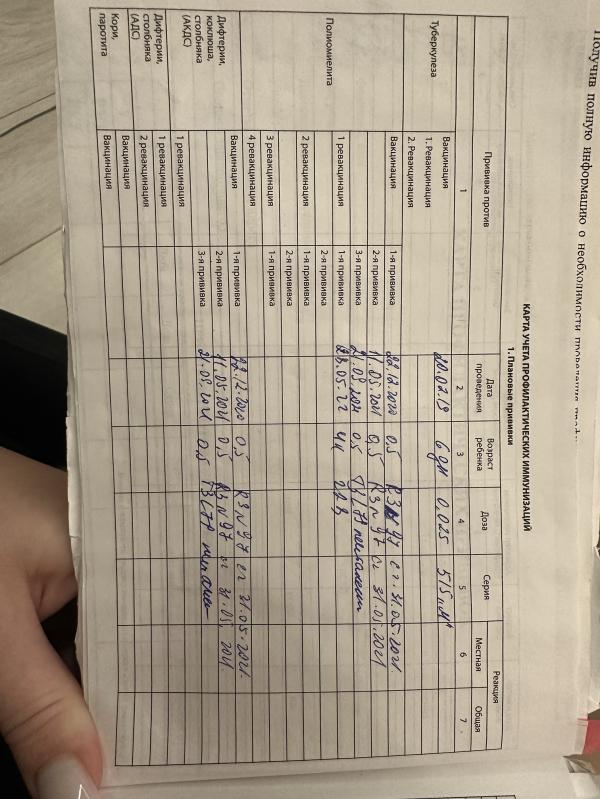 Получив полную информацию о необходимости проведения
КАРТА УЧЕТА ПРОФИЛАКТИЧЕСКИХ ИММУНИЗАЦИЙ
1. Плановые прививки
Прививка против
Дата проведения
Возраст ребенка
Доза
Серия
Реакция
Местная
Общая
1 2 3 4 5 6 7
Туберкулеза
Вакцинация 6 дн 0.025
1. Ревакцинация
2. Ревакцинация
Полиомиелита
Вакцинация 1-я прививка 22.12.2020 0.5 R3 N 97 с.г. 31.05.2021.
2-я прививка 11.03.2021 0,5 R3 N 97 сг 31.05.2021
3-я прививка 21.09.2021 0.5
1 ревакцинация 1-я прививка 23.05.22 4к
2-я прививка
2 ревакцинация 1-я прививка
2-я прививка
3 ревакцинация 1-я прививка
4 ревакцинация
Дифтерии, коклюша, столбняка (АКДС)
Вакцинация 1-я прививка 22.12.2020 0.5 R3 N 97 сг 31.05.2021.
2-я прививка 11.03.2021 0,5 R3 N 97 сг 31.05.2021
3-я прививка 21.09.2021 0.5
1 ревакцинация
Дифтерии, столбняка (АДС)
1 ревакцинация
2 ревакцинация
Кори, паротита
Вакцинация
Вакцинация